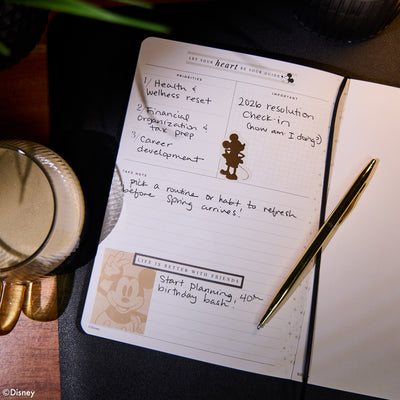 LET YOUR heart BE YOUR GUIDE
PRIORITIES
1/ Health &
wellness reset
2. Financial
Organization &
tax prep
3. Career
development
IMPORTANT
2026 resolution
Check-in
(how am I doing?)
TAKE NOTE
pick a routine or habit to refresh
before Spring arrives!
LIFE IS BETTER WITH FRIENDS
Start Planning 40th
birthday bash!
©Disney